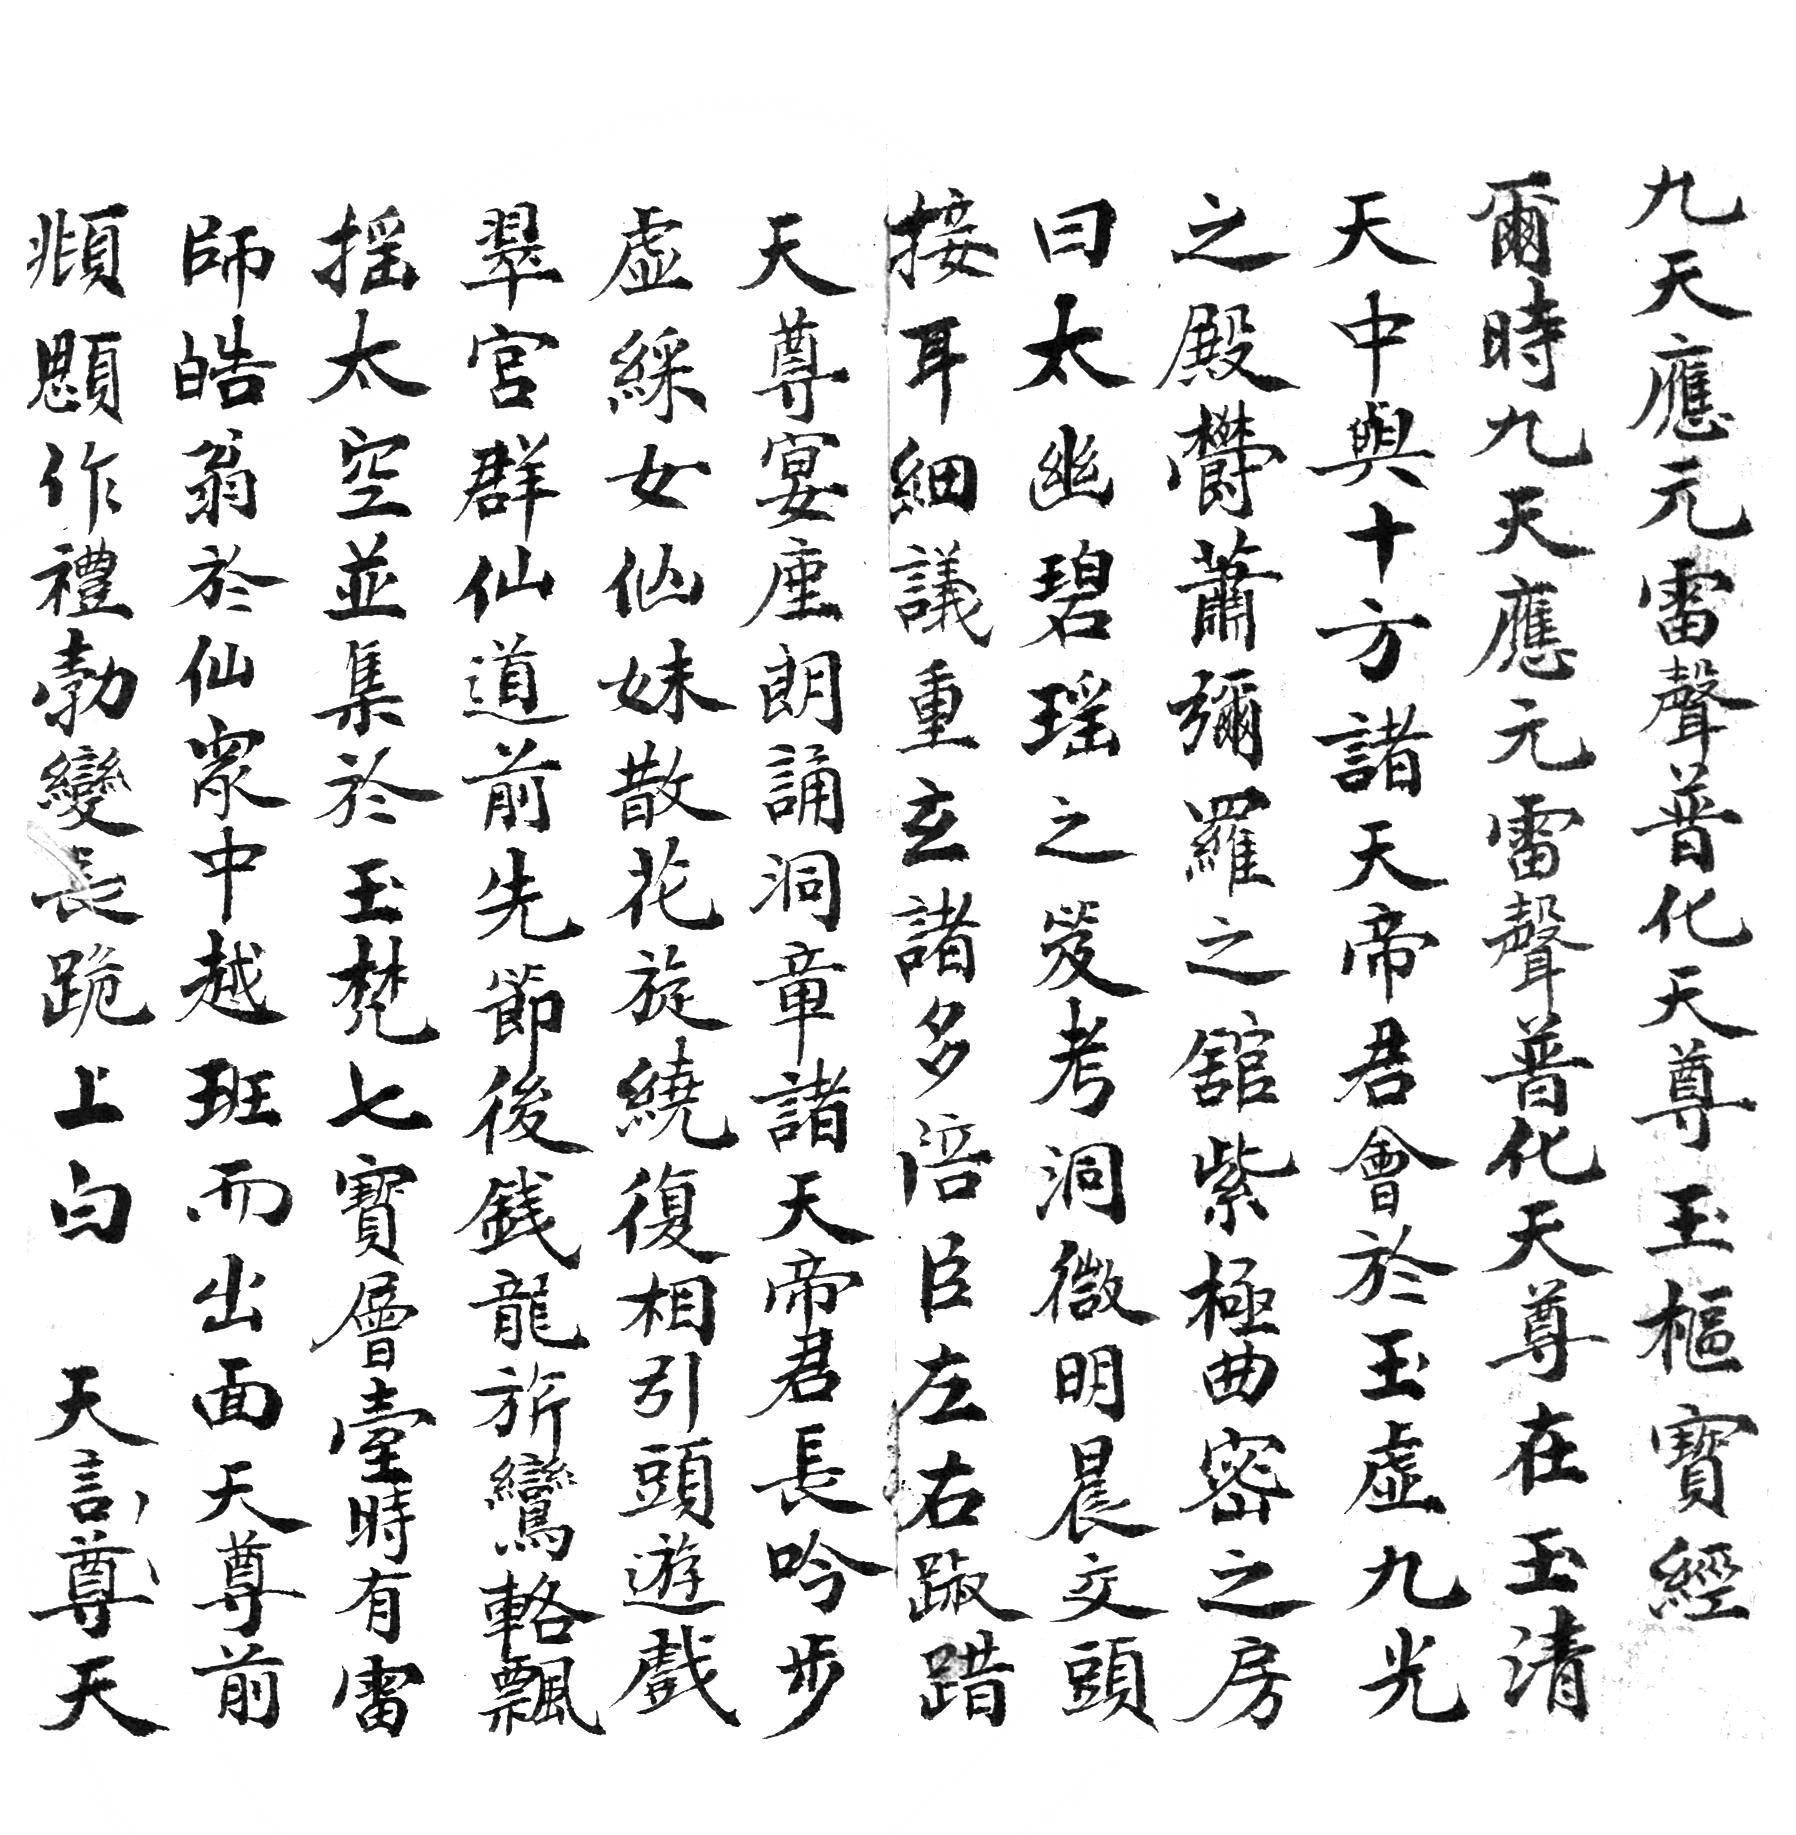 九天應元雷聲普化天尊玉樞寶經
爾時九天應元雷聲普化天尊在玉清
天中與十方諸天帝君會於玉虛九光
之殿欝蕭彌羅之舘紫極曲密之房
曰太幽碧瑶之笈考洞微明晨交頭
接耳細議重玄諸多涪臣左右踧踖
天尊宴座朗誦洞章諸天帝君長吟步
虛綵女仙妹散花旋繞復相引頭遊戲
翠宮群仙道前先節後銭龍旂鸞輅飄
揺太空並集於玉梵七寶層臺時有雷
師皓翁於仙衆中越班而出面天尊前
頫顋作禮勃變長跪上白 天言尊天